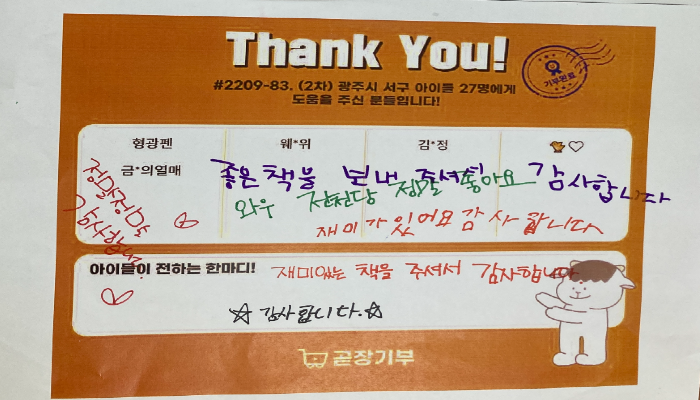 Thank You!
#2209-83. (2차) 광주시 서구 아이들 27명에게
도움을 주신 분들입니다!
기부완료
형광펜 웨*위 김*정
금*의열매
좋은 책을 보내 주셔서 감사합니다
와우 전천당 정말 좋아요
재미가 있어요 감사합니다
정말정말
감사합니다
아이들이 전하는 한마디!
재미있는 책을 주셔서 감사합니다
☆감사합니다.☆
곧장기부